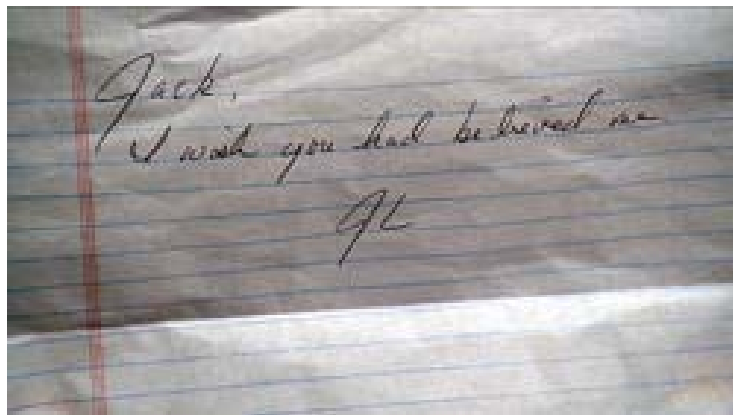 Jack.
I wish you had believed me
JL